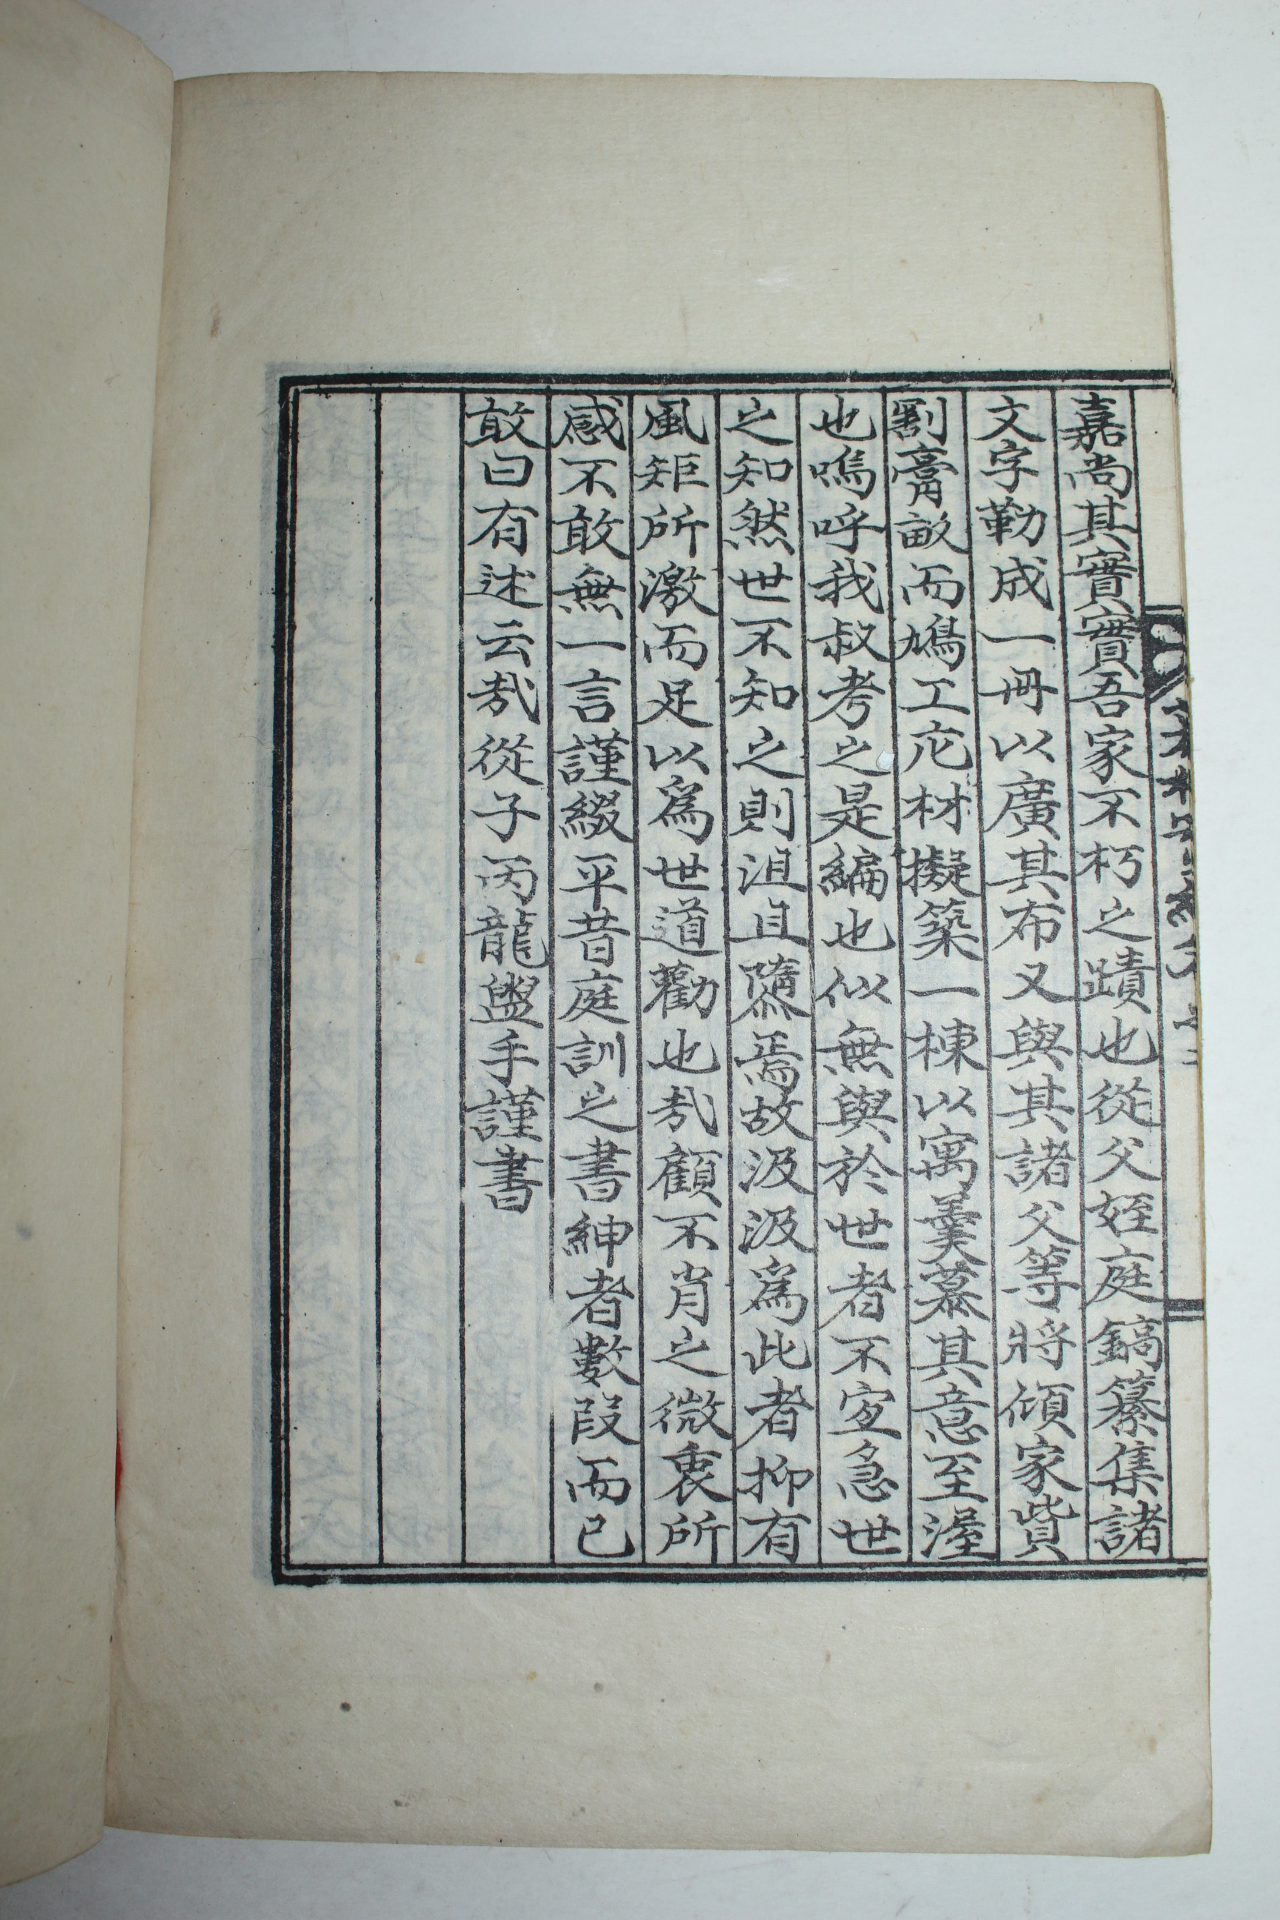 嘉尚其實實吾家不朽之蹟也從父姪庭鎬纂集諸
文字勒成一冊以廣其布又與其諸父等將傾家貲
割膏畝而鳩工庀材擬築一棟以寓羹慕其意至渥
也嗚呼我叔考之是編也似無與於世者不宜急世
之知然世不知之則沮且隳焉故汲汲爲此者抑有
風矩所激而足以爲世道勸也哉顧不肖之微衷所
感不敢無一言謹綴平昔庭訓之書紳者數段而已
敢曰有述云哉從子丙龍盥手謹書